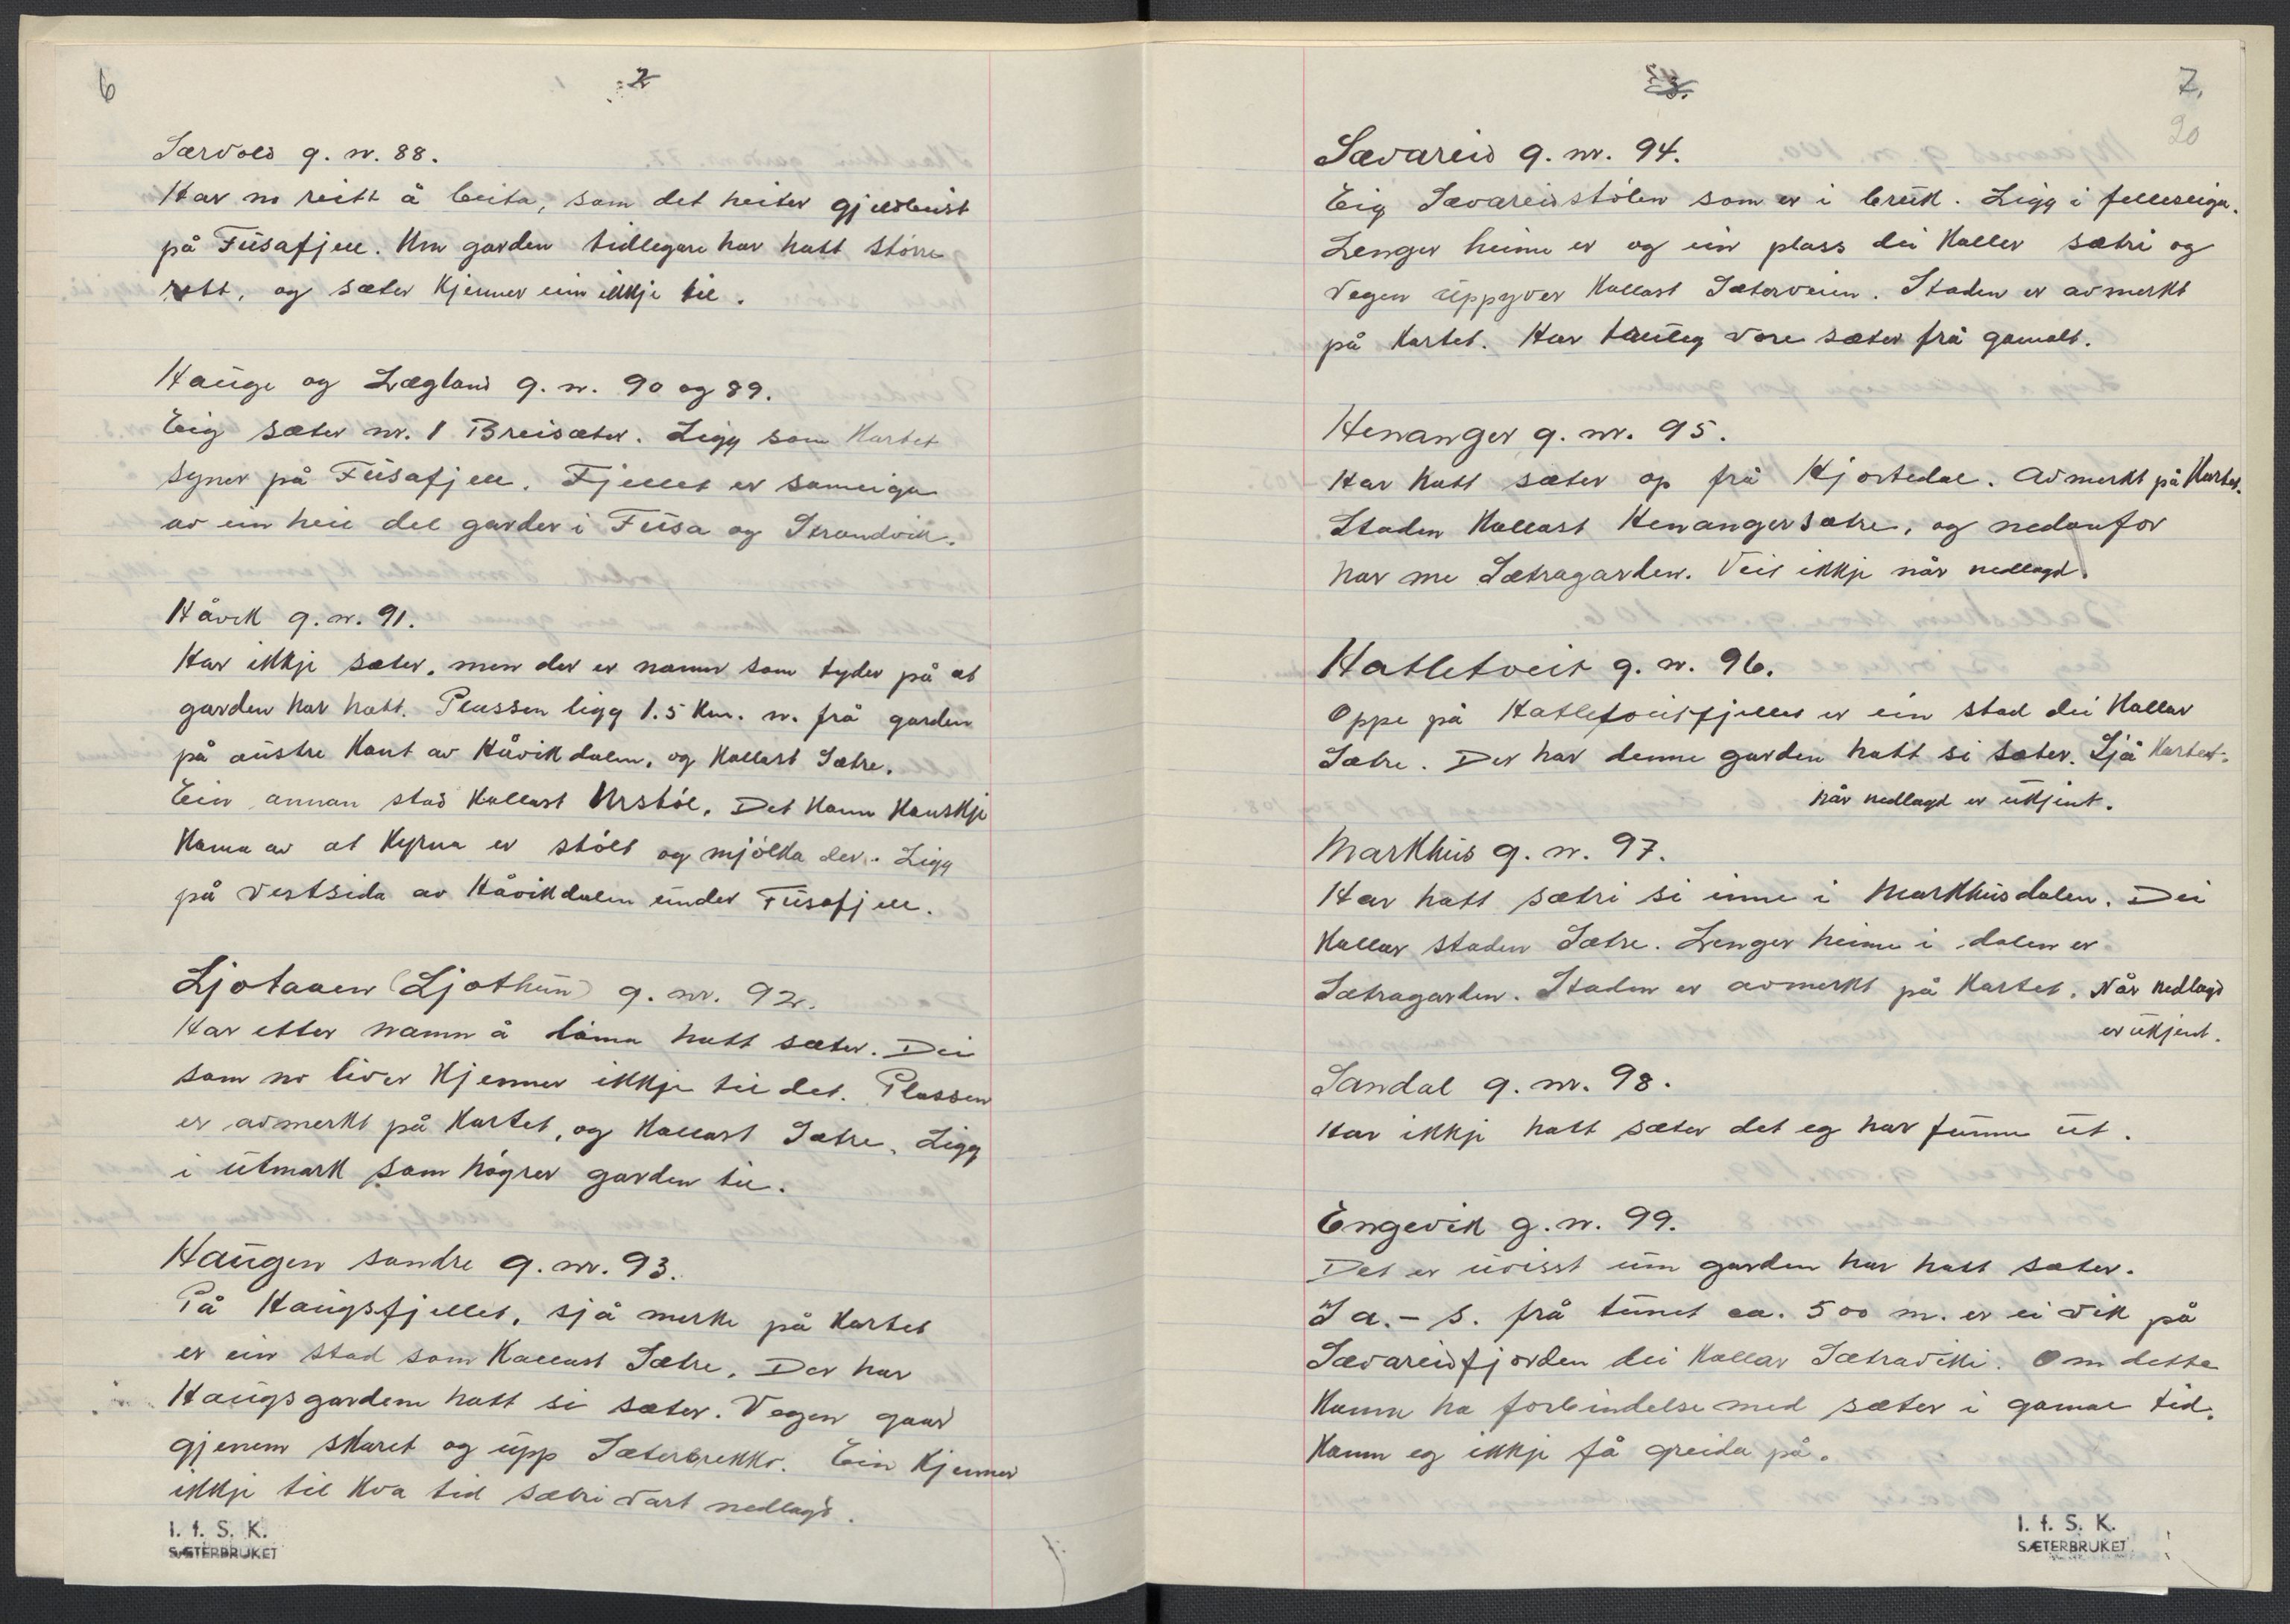 6
2
Særvold g. nr. 88.
Har no reitt å beita, som det heiter gjeldbeist
på Fusafjell. Um garden tidlegare har hatt større
rett, og sæter kjenner ein ikkje til.
Hauge og Lægland g. nr. 90 og 89.
Eig sæter nr. 1 Breisæter. Ligg som kartet
syner på Fusafjell. Fjellet er sameiga
av ein heil del garder i Fusa og Strandvik.
Håvik g. nr. 91.
Har ikkje sæter, men der er namn som tyder på at
garden har hatt. Plassen ligg 1.5 km. n. frå garden
på austre kant av Håvikdalen, og kallast Sætre.
Ein annan stad kallast Urstøl. Det kann kanskje
koma av at kyrna er stølt og mjølka der. Ligg
på vestsida av Håvikdalen under Fusafjell.
Ljotaaen (Ljothún) g. nr. 92.
Har etter namn å døma hatt sæter. Dei
som no liver kjenner ikkje til det. Plassen
er avmerkt på kartet, og kallast Sætre. Ligg
i utmark som høyrer garden til.
Haugen søndre g. nr. 93.
På Haugsfjellet, sjå merke på kartet
er ein stad som kallast Sætre. Der har
Haugsgardene hatt si sæter. Vegen gaar
gjenem skaret og upp Sæterbrekko. Ein kjenner
ikkje til kva tid sætri vart nedlagd.
I. f. S. K.
SÆTERBRUKET
3.
7.
20
Sævareid g. nr. 94.
Eig Sævareidstølen som er i bruk. Ligg i felleseiga.
Lenger heime er og ein plass dei kaller sætri og
vegen uppyver kallast Sæterveien. Staden er avmerkt
på kartet. Har truleg vore sæter frå gamalt.
Henanger g. nr. 95.
Har hatt sæter op frå Hjortedal. Avmerkt på kartet.
Staden kallast Henangersætre, og nedanfor
har me Sætragarden. Veit ikkje når nedlagd.
Hatletveit g. nr. 96.
Oppe på Hatletveitfjellet er ein stad dei kallar
Sætre. Der har denne garden hatt si sæter. Sjå kartet.
Når nedlagd er ukjent.
Markhus g. nr. 97.
Har hatt sætri si inne i Markhusdalen. Dei
kallar staden Sætre. Lenger heime i dalen er
Sætragarden. Staden er avmerkt på kartet. Når nedlagd
er ukjent.
Sandal g. nr. 98.
Har ikkje hatt sæter det eg har funne ut.
Engevik g. nr. 99.
Det er uvisst um garden har hatt sæter.
I a. - s. frå tunet ca. 500 m. er ei vik på
Sævareidfjorden dei kallar Sætraviki. Om dette
kann ha forbindelse med sæter i gamal tid.
kann eg ikkje få greida på.
I. f. S. K.
SÆTERBRUKET